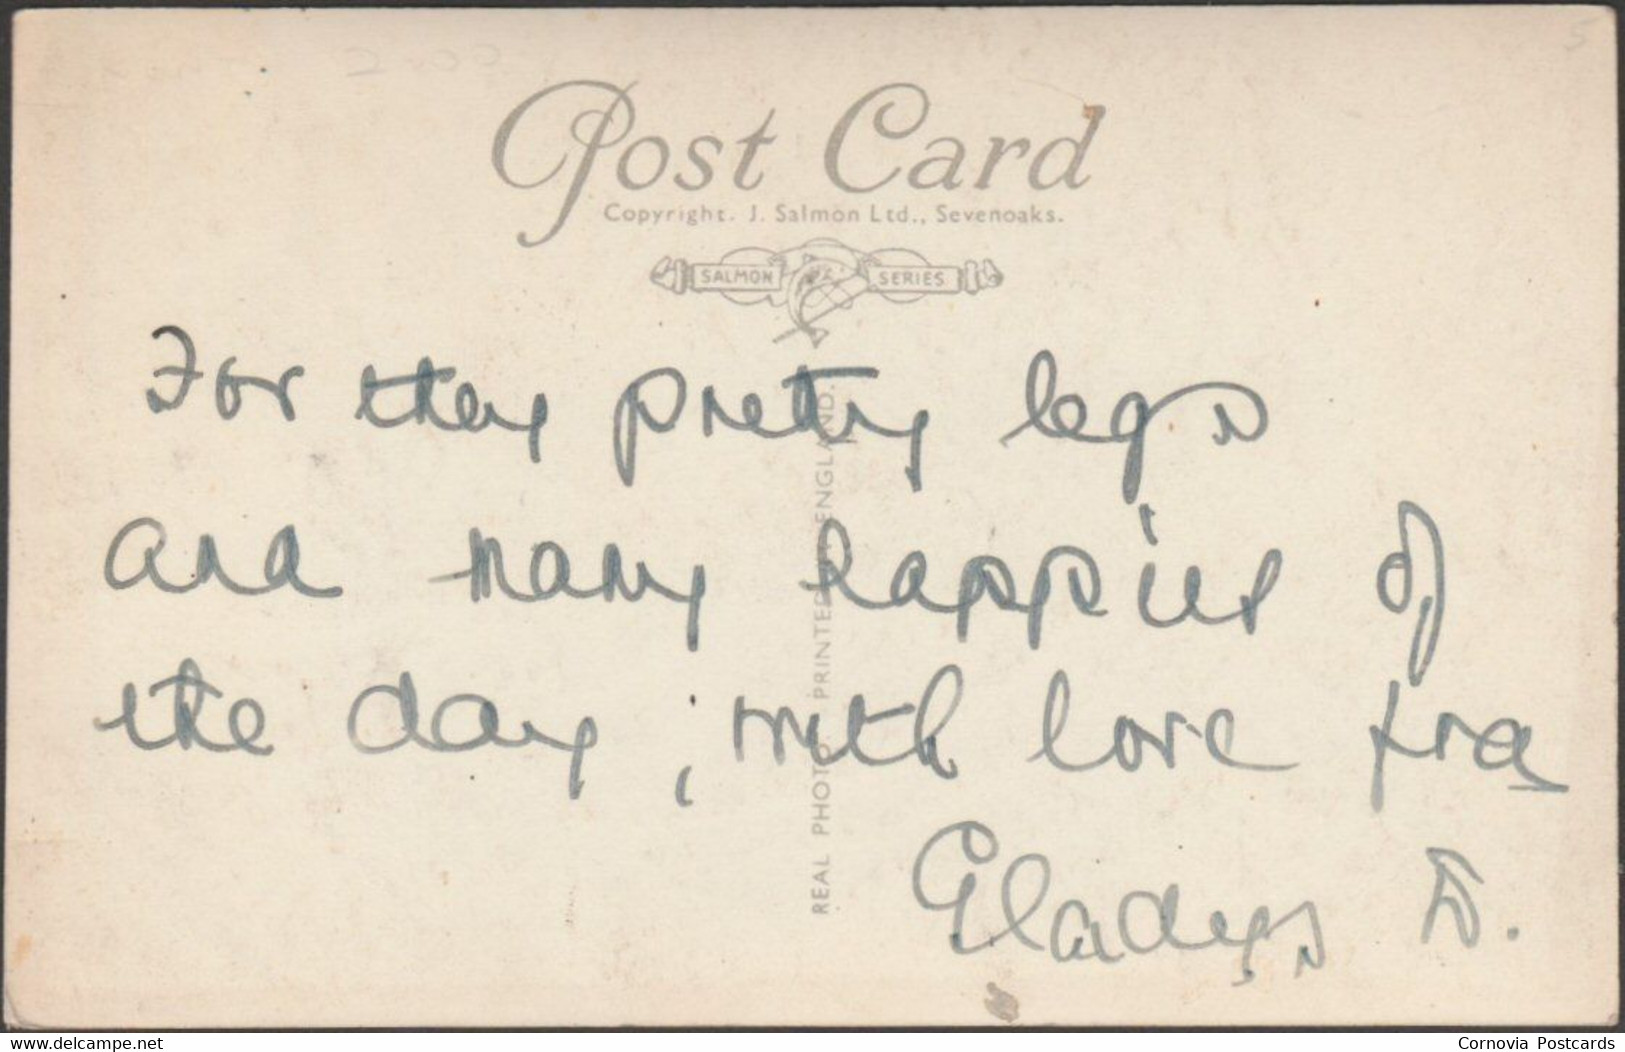 Post Card
Copyright. J. Salmon Ltd., Sevenoaks.
SALMON SERIES
For they pretty legs
and many happies of
the day, with love fra
Gladys D.
REAL PHOTO. PRINTED IN ENGLAND.
www.delcampe.net
Cornovia Postcards